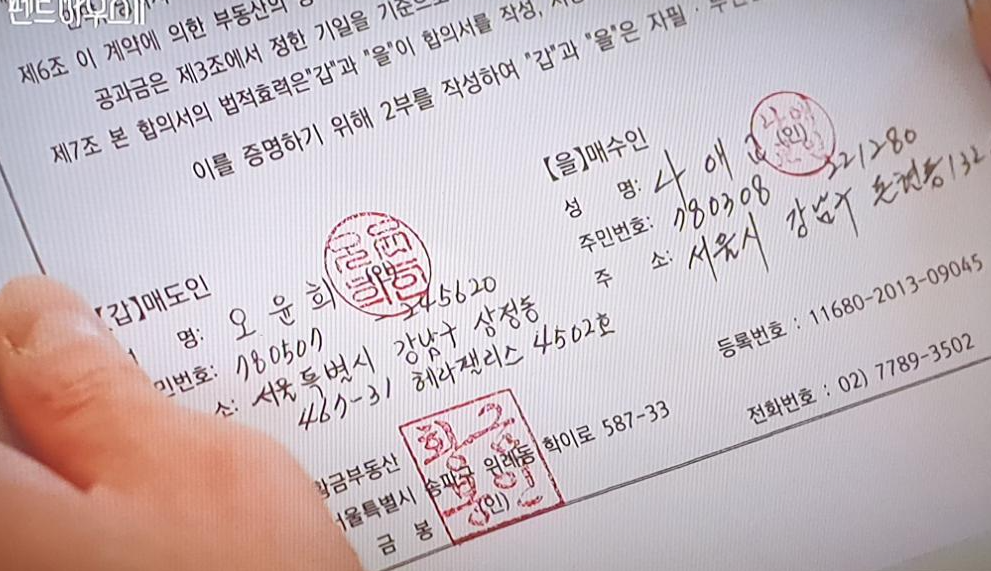 펜트하우스II
제6조 이 계약에 의한 부동산의
공과금은 제3조에서 정한 기일을 기준으로
제7조 본 합의서의 법적효력은"갑"과 "을"이 합의서를 작성,
이를 증명하기 위해 2부를 작성하여 "갑"과 "을"은 자필 ·
【을】매수인
성 명: 나 애 교 (인)
주민번호: 780308 221280
주 소: 서울시 강남구 132
【갑】매도인
명: 오 윤 희 (인)
민번호: 780507 245620
소: 서울특별시 강남구 삼정동
467-31 헤라팰리스 4502호
등록번호 : 11680-2013-09045
황금부동산
서울특별시 송파구 위례동 학이로 587-33
전화번호 : 02) 7789-3502
금 봉 (인)